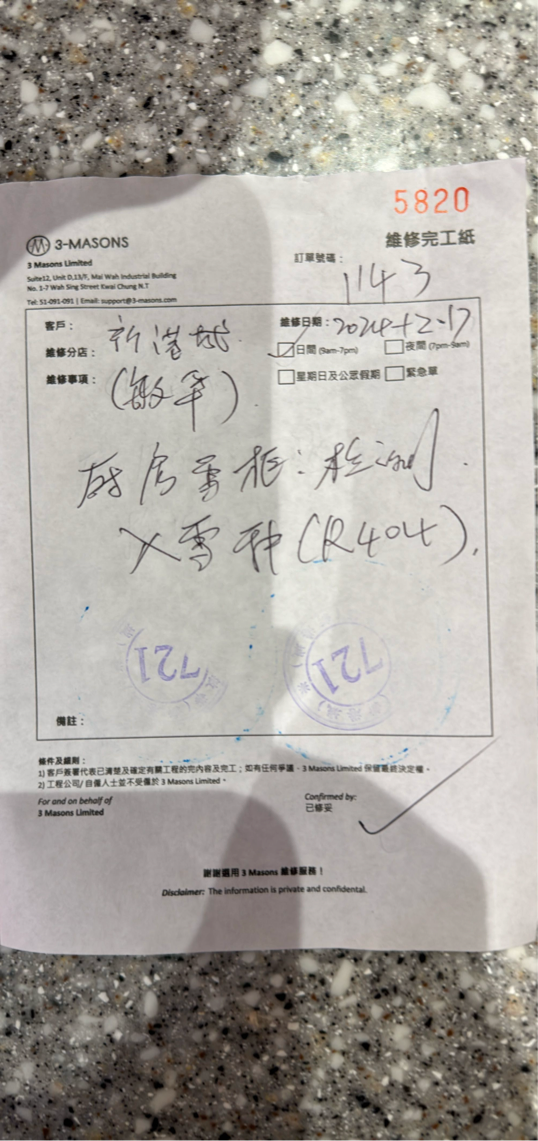 5820
3-MASONS
維修完工紙
3 Masons Limited
Suite12, Unit D,13/F, Mai Wah Industrial Building
No. 1-7 Wah Sing Street Kwai Chung N.T
Tel: 51-091-091 | Email: support@3-masons.com
訂單號碼：
1143
客戶：
新港城
維修日期：2024-12-17
維修分店：
日間 (9am-7pm) 夜間 (7pm-9am)
維修事項：
星期日及公眾假期 緊急單
廚房雪柜：檢測
入雪種(R404).
721
721
備註：
條件及細則：
1) 客戶簽署代表已清楚及確定有關工程的完內容及完工；如有任何爭議，3 Masons Limited 保留最終決定權。
2) 工程公司/ 自僱人士並不受僱於 3 Masons Limited。
For and on behalf of
3 Masons Limited
Confirmed by:
已修妥
謝謝選用 3 Masons 維修服務！
Disclaimer: The information is private and confidental.